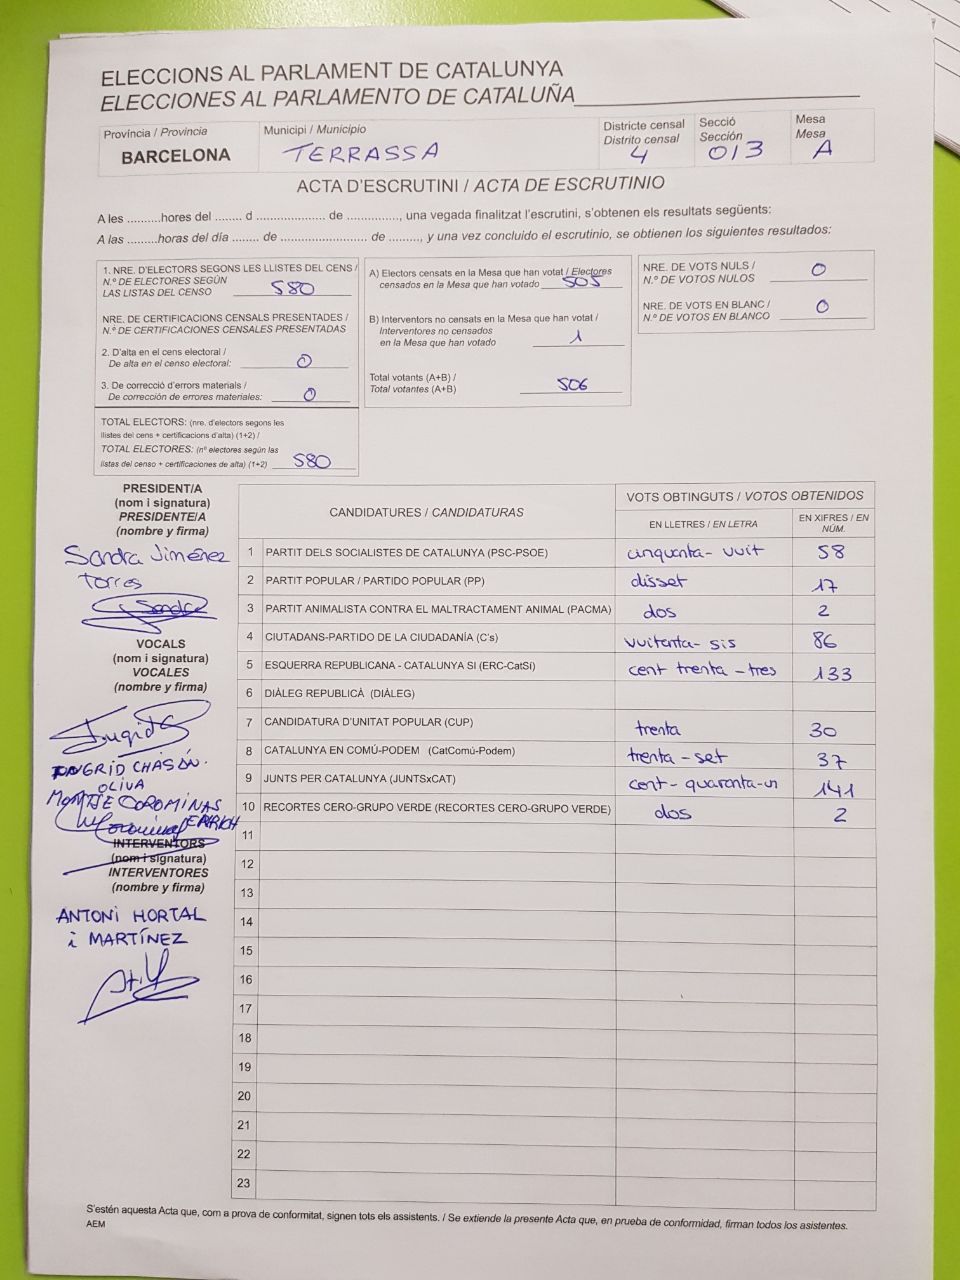 ELECCIONS AL PARLAMENT DE CATALUNYA
ELECCIONES AL PARLAMENTO DE CATALUÑA
Província / Provincia
BARCELONA
Municipi / Município
TERRASSA
Districte censal
Distrito censal
4
Secció
Sección
013
Mesa
Mesa
A
ACTA D'ESCRUTINI / ACTA DE ESCRUTINIO
A les ..........hores del ........ d ..................... de ................, una vegada finalitzat l'escrutini, s'obtenen els resultats següents:
A las .........horas del día ........ de .......................... de ........., y una vez concluido el escrutinio, se obtienen los siguientes resultados:
1. NRE. D'ELECTORS SEGONS LES LLISTES DEL CENS /
N.º DE ELECTORES SEGÚN
LAS LISTAS DEL CENSO 580
NRE. DE CERTIFICACIONS CENSALS PRESENTADES /
N.º DE CERTIFICACIONES CENSALES PRESENTADAS
2. D'alta en el cens electoral /
De alta en el censo electoral: 0
3. De correcció d'errors materials /
De corrección de errores materiales: 0
TOTAL ELECTORS: (nre. d'electors segons les
llistes del cens + certificacions d'alta) (1+2) /
TOTAL ELECTORES: (nº electores según las
listas del censo + certificaciones de alta) (1+2) 580
A) Electors censats en la Mesa que han votat / Electores
censados en la Mesa que han votado 505
B) Interventors no censats en la Mesa que han votat /
Interventores no censados
en la Mesa que han votado 1
Total votants (A+B) /
Total votantes (A+B) 506
NRE. DE VOTS NULS /
N.º DE VOTOS NULOS 0
NRE. DE VOTS EN BLANC /
N.º DE VOTOS EN BLANCO 0
PRESIDENT/A
(nom i signatura)
PRESIDENTE/A
(nombre y firma)
Sandra Jiménez
Torres
Sandra
VOCALS
(nom i signatura)
VOCALES
(nombre y firma)
Ingrid
INGRID CHASÁN.
OLIVA
MONTSE COROMINAS
INTERVENTORS
(nom i signatura)
INTERVENTORES
(nombre y firma)
ANTONI HORTAL
i MARTÍNEZ
CANDIDATURES / CANDIDATURAS
VOTS OBTINGUTS / VOTOS OBTENIDOS
EN LLETRES / EN LETRA
EN XIFRES / EN
NÚM.
1 PARTIT DELS SOCIALISTES DE CATALUNYA (PSC-PSOE) cinquanta-vuit 58
2 PARTIT POPULAR / PARTIDO POPULAR (PP) disset 17
3 PARTIT ANIMALISTA CONTRA EL MALTRACTAMENT ANIMAL (PACMA) dos 2
4 CIUTADANS-PARTIDO DE LA CIUDADANÍA (C's) vuitanta-sis 86
5 ESQUERRA REPUBLICANA - CATALUNYA SI (ERC-CatSí) cent trenta-tres 133
6 DIÀLEG REPUBLICÀ (DIÀLEG)
7 CANDIDATURA D'UNITAT POPULAR (CUP) trenta 30
8 CATALUNYA EN COMÚ-PODEM (CatComú-Podem) trenta-set 37
9 JUNTS PER CATALUNYA (JUNTSxCAT) cent-quaranta-un 141
10 RECORTES CERO-GRUPO VERDE (RECORTES CERO-GRUPO VERDE) dos 2
11
12
13
14
15
16
17
18
19
20
21
22
23
S'estén aquesta Acta que, com a prova de conformitat, signen tots els assistents. / Se extiende la presente Acta que, en prueba de conformidad, firman todos los asistentes.
AEM